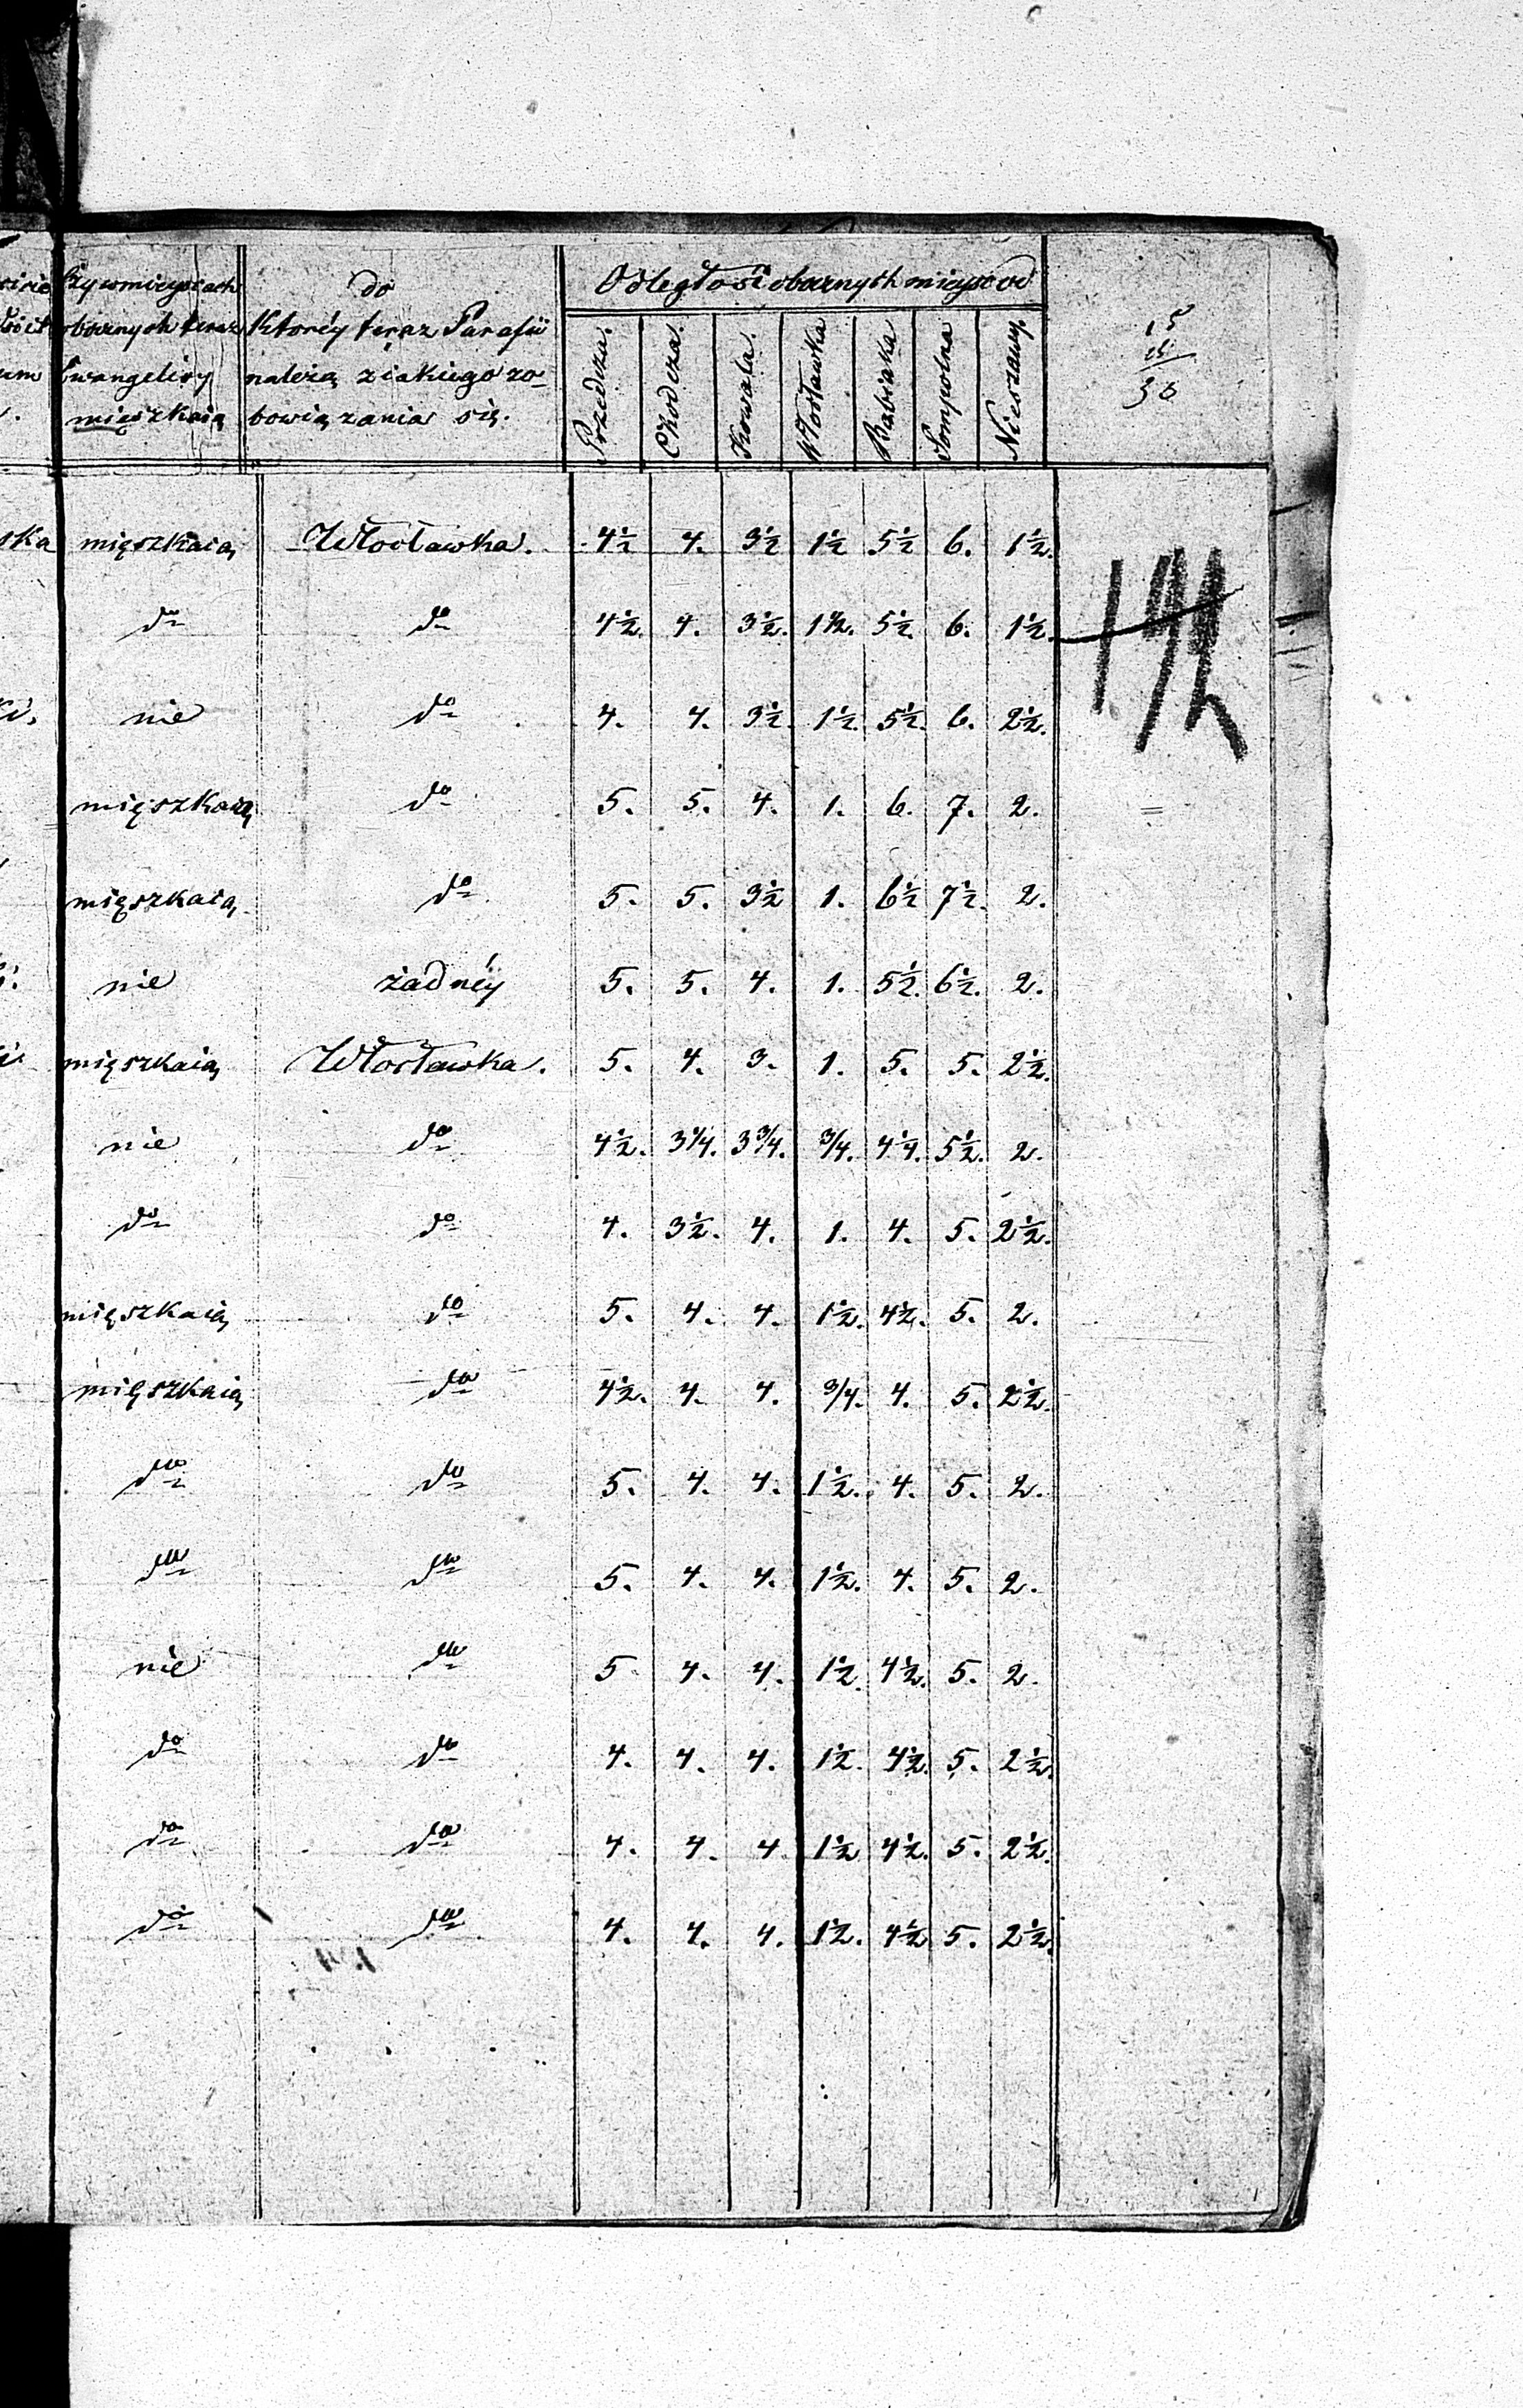 Czy w mieyscach obocznych teraz Ewangelicy mięszkaią
do Któréy teraz Parafii należą z iakiego zobowiązania się.
Odległość obocznych mieysc od
Przedcza. Chodcza. Kowala. Włocławka Babiaka Sompolna Nieszawy.
15
15
30
ska mięszkaią Włocławka. 4½ 4. 3½ 1½ 5½ 6. 1½.
do do 4½. 4. 3½. 1½. 5½. 6. 1½.
nie do 4. 4. 3½. 1½. 5½. 6. 2½.
mięszkaią do 5. 5. 4. 1. 6. 7. 2.
mięszkaią do 5. 5. 3½ 1. 6½ 7½. 2.
nie żadnéy 5. 5. 4. 1. 5½. 6½. 2.
mięszkaią Włocławka. 5. 4. 3. 1. 5. 5. 2½.
nie do 4½. 3¼. 3¾. ¾. 4¼. 5½. 2.
do do 4. 3½. 4. 1. 4. 5. 2½.
mięszkaią do 5. 4. 4. 1½. 4½. 5. 2.
mięszkaią do 4½. 4. 4. ¾. 4. 5. 2½.
do do 5. 4. 4. 1½. 4. 5. 2.
do do 5. 4. 4. 1½. 4. 5. 2.
nie do 5 4. 4. 1½. 4½. 5. 2.
do do 4. 4. 4. 1½. 4½. 5. 2½.
do do 4. 4. 4 1½ 4½. 5. 2½.
do do 4. 4. 4. 1½. 4½ 5. 2½.